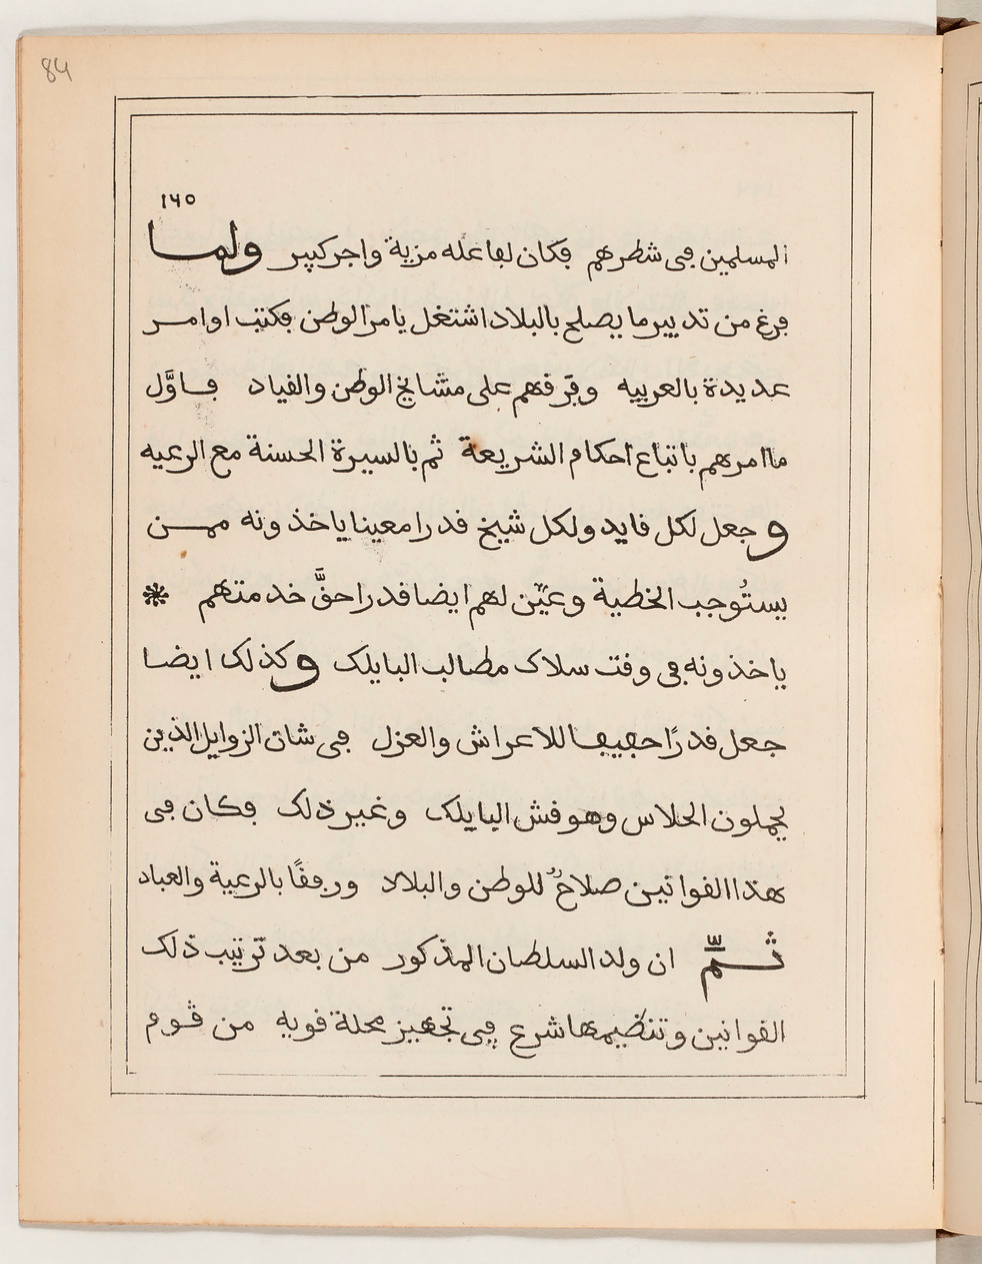 84
١٦٥
المسلمين في شطرهم فكان لفاعله مزية واجر كبير ولما
فرغ من تدبير ما يصلح بالبلاد اشتغل بامر الوطن فكتب اوامر
عديدة بالعربيه وفرقهم على مشايخ الوطن والقياد فاوَّل
ما امرهم باتباع احكام الشريعة ثم بالسيرة الحسنة مع الرعيه
وجعل لكل قايد ولكل شيخ قدرا معينا ياخذونه ممن
يستُوجب الخطية وعيّن لهم ايضا قدرا حقَّ خدمتهم *
ياخذونه في وقت سلاك مطالب البايلك وكذلك ايضا
جعل قدرًا حفيفا للاعراش والعزل في شان الزوايل الذين
يحملون الحلاس وهو قش البايلك وغير ذلك فكان في
هذا القوانين صلاحٌ للوطن والبلاد ورفقًا بالرعية والعباد
ثمّ ان ولد السلطان المذكور من بعد ترتيب ذلك
القوانين وتنظيمها شرع في تجهيز محلة قويه من قوم